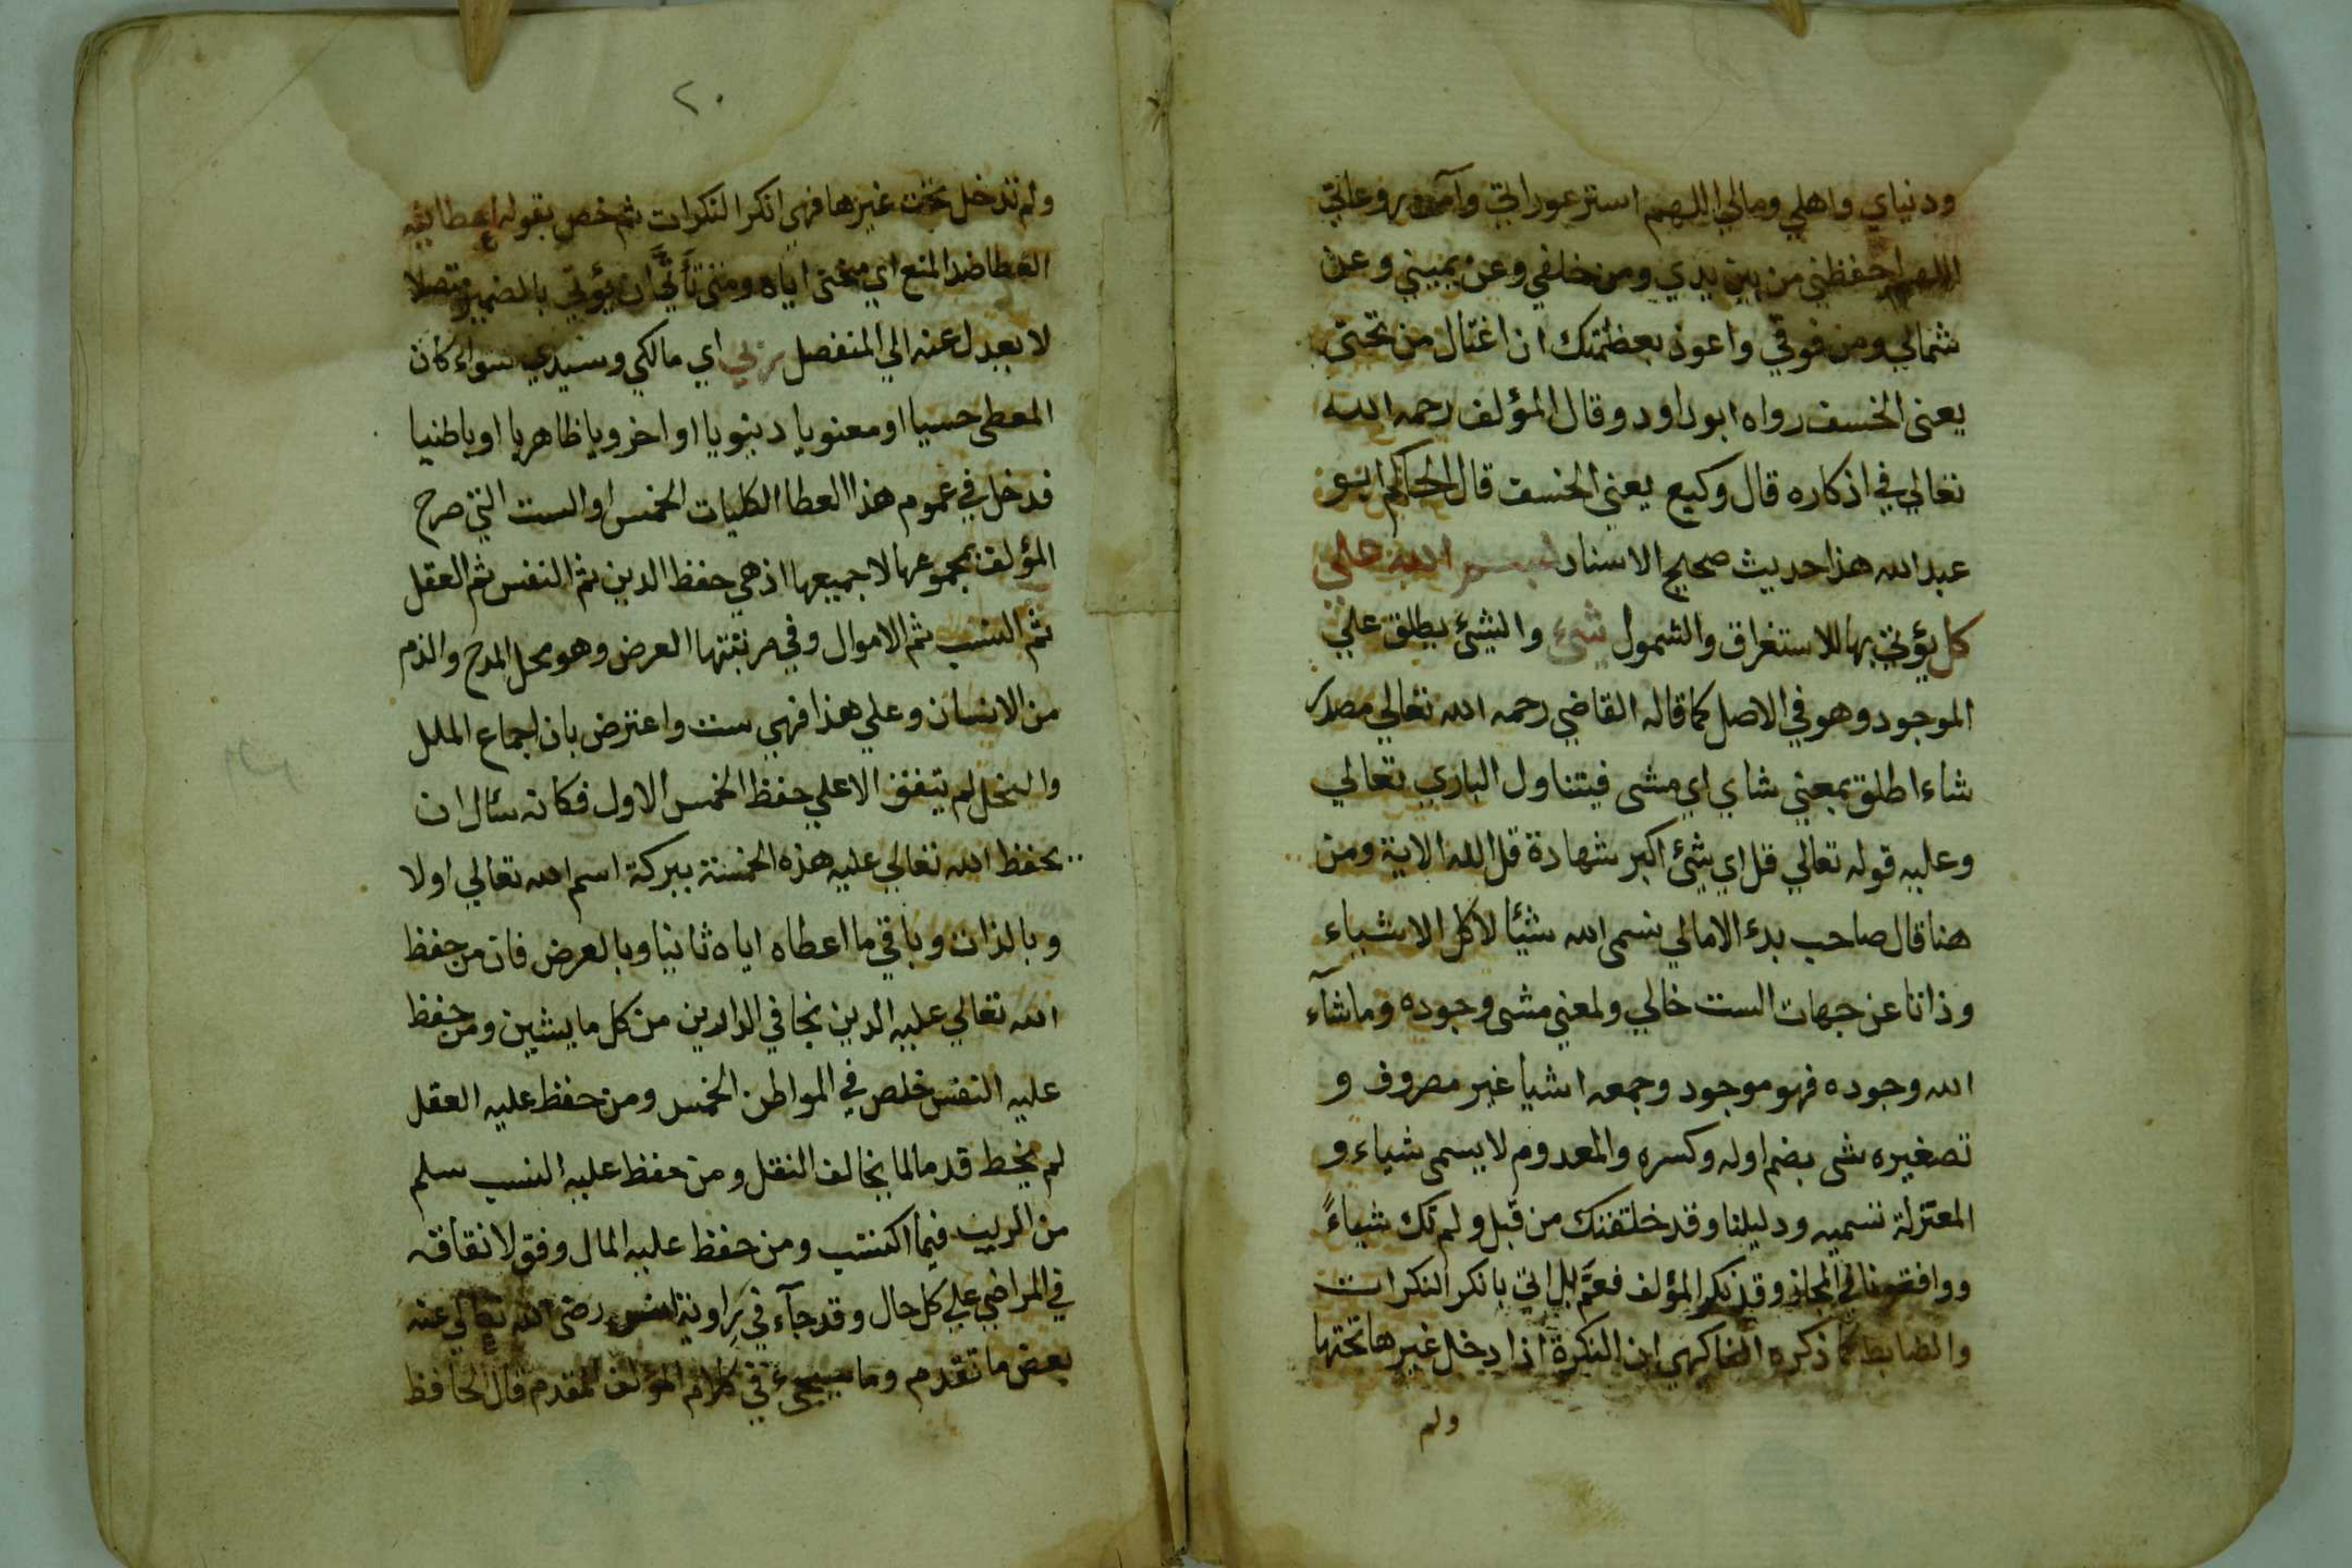 ودنياي واهلي ومالي اللهم استر عوراتي وآمن روعاتي
اللهم احفظني من بين يدي ومن خلفي وعن يميني وعن
شمالي ومن فوقي واعوذ بعظمتك ان اغتال من تحتي
يعنى الخسف رواه ابو داود وقال المؤلف رحمه الله
تعالي في اذكاره قال وكيع يعني الخسف قال الحاكم ابو
عبد الله هذا حديث صحيح الاسناد بسم الله علي
كل يؤتي بها للاستغراق والشمول شئ والشئ يطلق علي
الموجود وهو في الاصل كما قاله القاضي رحمه الله تعالي مصدر
شاء اطلق بمعني شاي اي مشى فيتناول الباري تعالي
وعليه قوله تعالي قل اي شئ اكبر شهادة قل الله الاية ومن
هنا قال صاحب بدء الامالي نسمى الله شيئا لا كل الاشياء
وذاتا عن جهات الست خالي ولمعني مشى وجوده وما شآء
الله وجوده فهو موجود وجمعه اشيا غير مصروف و
تصغيره شى بضم اوله وكسره والمعدوم لا يسمى شياء و
المعتزلة تسميه ودليلنا وقد خلقتك من قبل ولم تك شياءً
ووافقونا في المجاز وقد نكر المؤلف فعمَّ بل اتي بانكر النكرات
والضابط كما ذكره الفاكهى ان النكرة اذا دخل غيرها تحتها
ولم
٢٠
ولم تدخل تحت غيرها فهي انكر النكرات ثم خص بقوله اعطانيه
العطا ضد المنع اي منحنى اياه ومتى تأتَّى ان يؤتي بالضمير متصلا
لا يعدل عنه الي المنفصل ربي اي مالكي وسيدي سواء كان
المعطى حسيا او معنويا دينويا او اخرويا ظاهريا او باطنيا
فدخل في عموم هذا العطا الكليات الخمس او الست التي صرح
المؤلف بمجموعها لا جميعها اذ هي حفظ الدين ثم النفس ثم العقل
ثم النسب ثم الاموال وفي مرتبتها العرض وهو محل المدح والذم
من الانسان وعلي هذا فهي ست واعترض بان اجماع الملل
والنحل لم يتفق الا علي حفظ الخمس الاول فكانه سئال ان
يحفظ الله تعالي عليه هذه الخمسة ببركة اسم الله تعالي اولا
وبالذات وباقي ما اعطاه اياه ثانيا وبالعرض فان من حفظ
الله تعالي عليه الدين نجا في الدارين من كل ما يشين ومن حفظ
عليه النفس خلص في المواطن الخمس ومن حفظ عليه العقل
لم يخط قدما لما يخالف النقل ومن حفظ عليه النسب سلم
من الريب فيما اكتسب ومن حفظ عليه المال وفق لانفاقه
في المراضي علي كل حال وقد جآء في رواية انس رضى الله تعالي عنه
بعض ما تقدم وما سيجئ في كلام المؤلف المقدم قال الحافظ